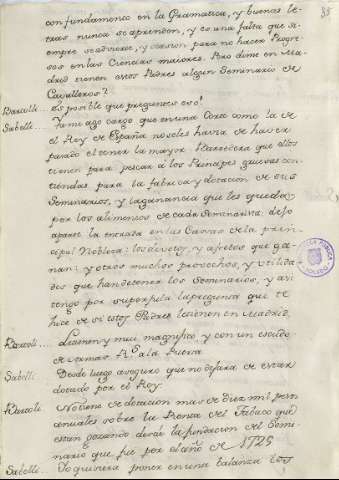 con fundamento en la Gramatica, y buenas le
tras nunca se aprenden, y es una falta que si
empre se advierte, y ocasion para no hacer Progre
sos en las Ciencias maiores. Pero dime en Ma
drid tienen estos Padres algun Seminario de
Cavalleros?
Bartoli... Es posible que preguntes eso!
Sabelli... Ya me ago cargo que en una Corte como la de
el Rey de España no seles havia de haver
parado el tener la mayor Barredera que ellos
tienen para pescar a los Principes que
para la fabrica y dotacion de sus
Seminarios, y la ganancia que les queda
por los alimentos de cada Seminarista: dejo
aparte la entrada en las Casas de la prin
cipal Nobleza: los devotos, y afectos que ga
nan: y otros muchos provechos, y utilida
des que han de tener los Seminarios, y asi
tengo por superflua la pregunta que te
hice de si estos Padres le tienen en Madrid.
Bartoli... Le tienen y mui magnifico y con un escudo
de Armas R.s a la Puerta
Sabelli... Desde luego aseguro que no dejara de estar
dotado por el Rey.
Bartoli... No tiene de dotacion mas de diez mil
annuales sobre la Renta del Tabaco que
estan gozando desde la fundacion del Semi
nario que fue por el año de 1725
Sabelli... Yo quisiera poner en una balanza los
85
TOLEDO